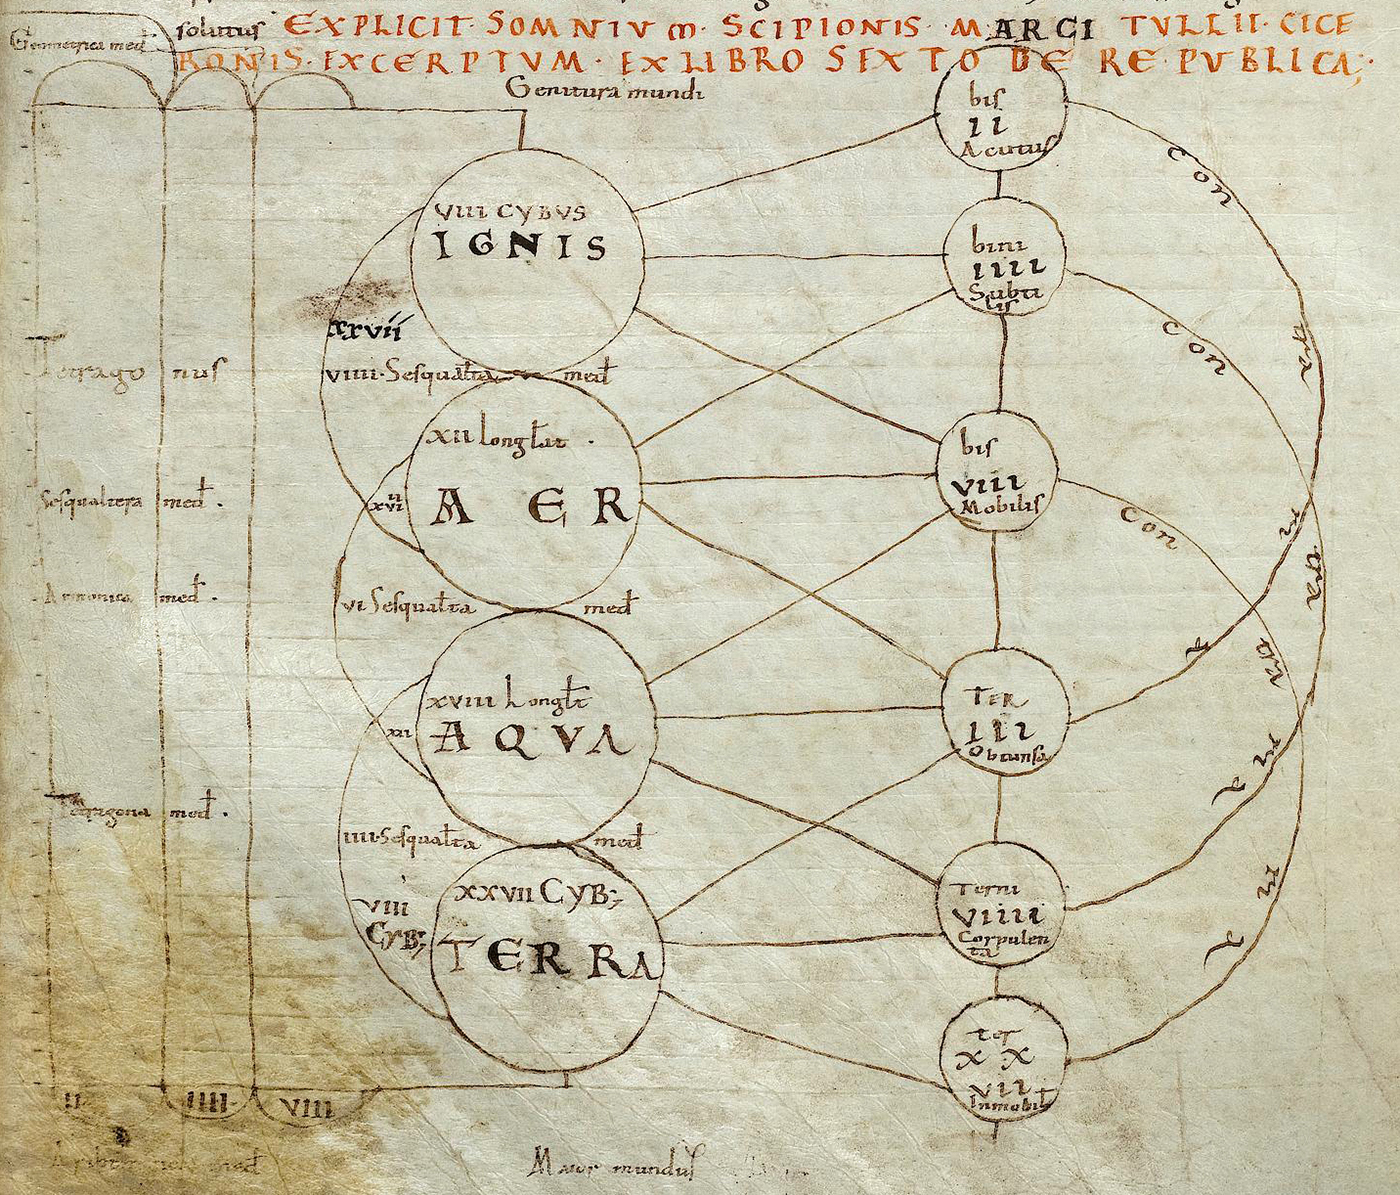 solutus EXPLICIT· SOMNIVM· SCIPIONIS· MARCI TVLLII· CICE
RONIS· EXCERPTVM· EX LIBRO SEXTO DE RE PVBLICA;·
Geometrica med̄
Genitura mundi
bis
II
Acutus
VIII CYBVS
IGNIS
bini
IIII
Subti
lis
xxvii
viiii· Sesqualt̄a med̄
Tetrago nus
xii longl̄at ·
AER
bis
VIII
Mobilis
Sesqualtera med̄ ·
Armonica med̄ ·
vi Sesqualt̄a med̄
xviii Longl̄t
AQVA
xii
TER
III
Obtunsa
Tetragona med̄ ·
iiii· Sesqualt̄a med̄
XXVII CYB;
TERRA
viii
CYB;
Terni
VIIII
Corpulen
ta
ter
XX
VII
Inmobil̄
con tra r a
con tra r a
con tra r a
II IIII VIII
med̄
Maior mundus